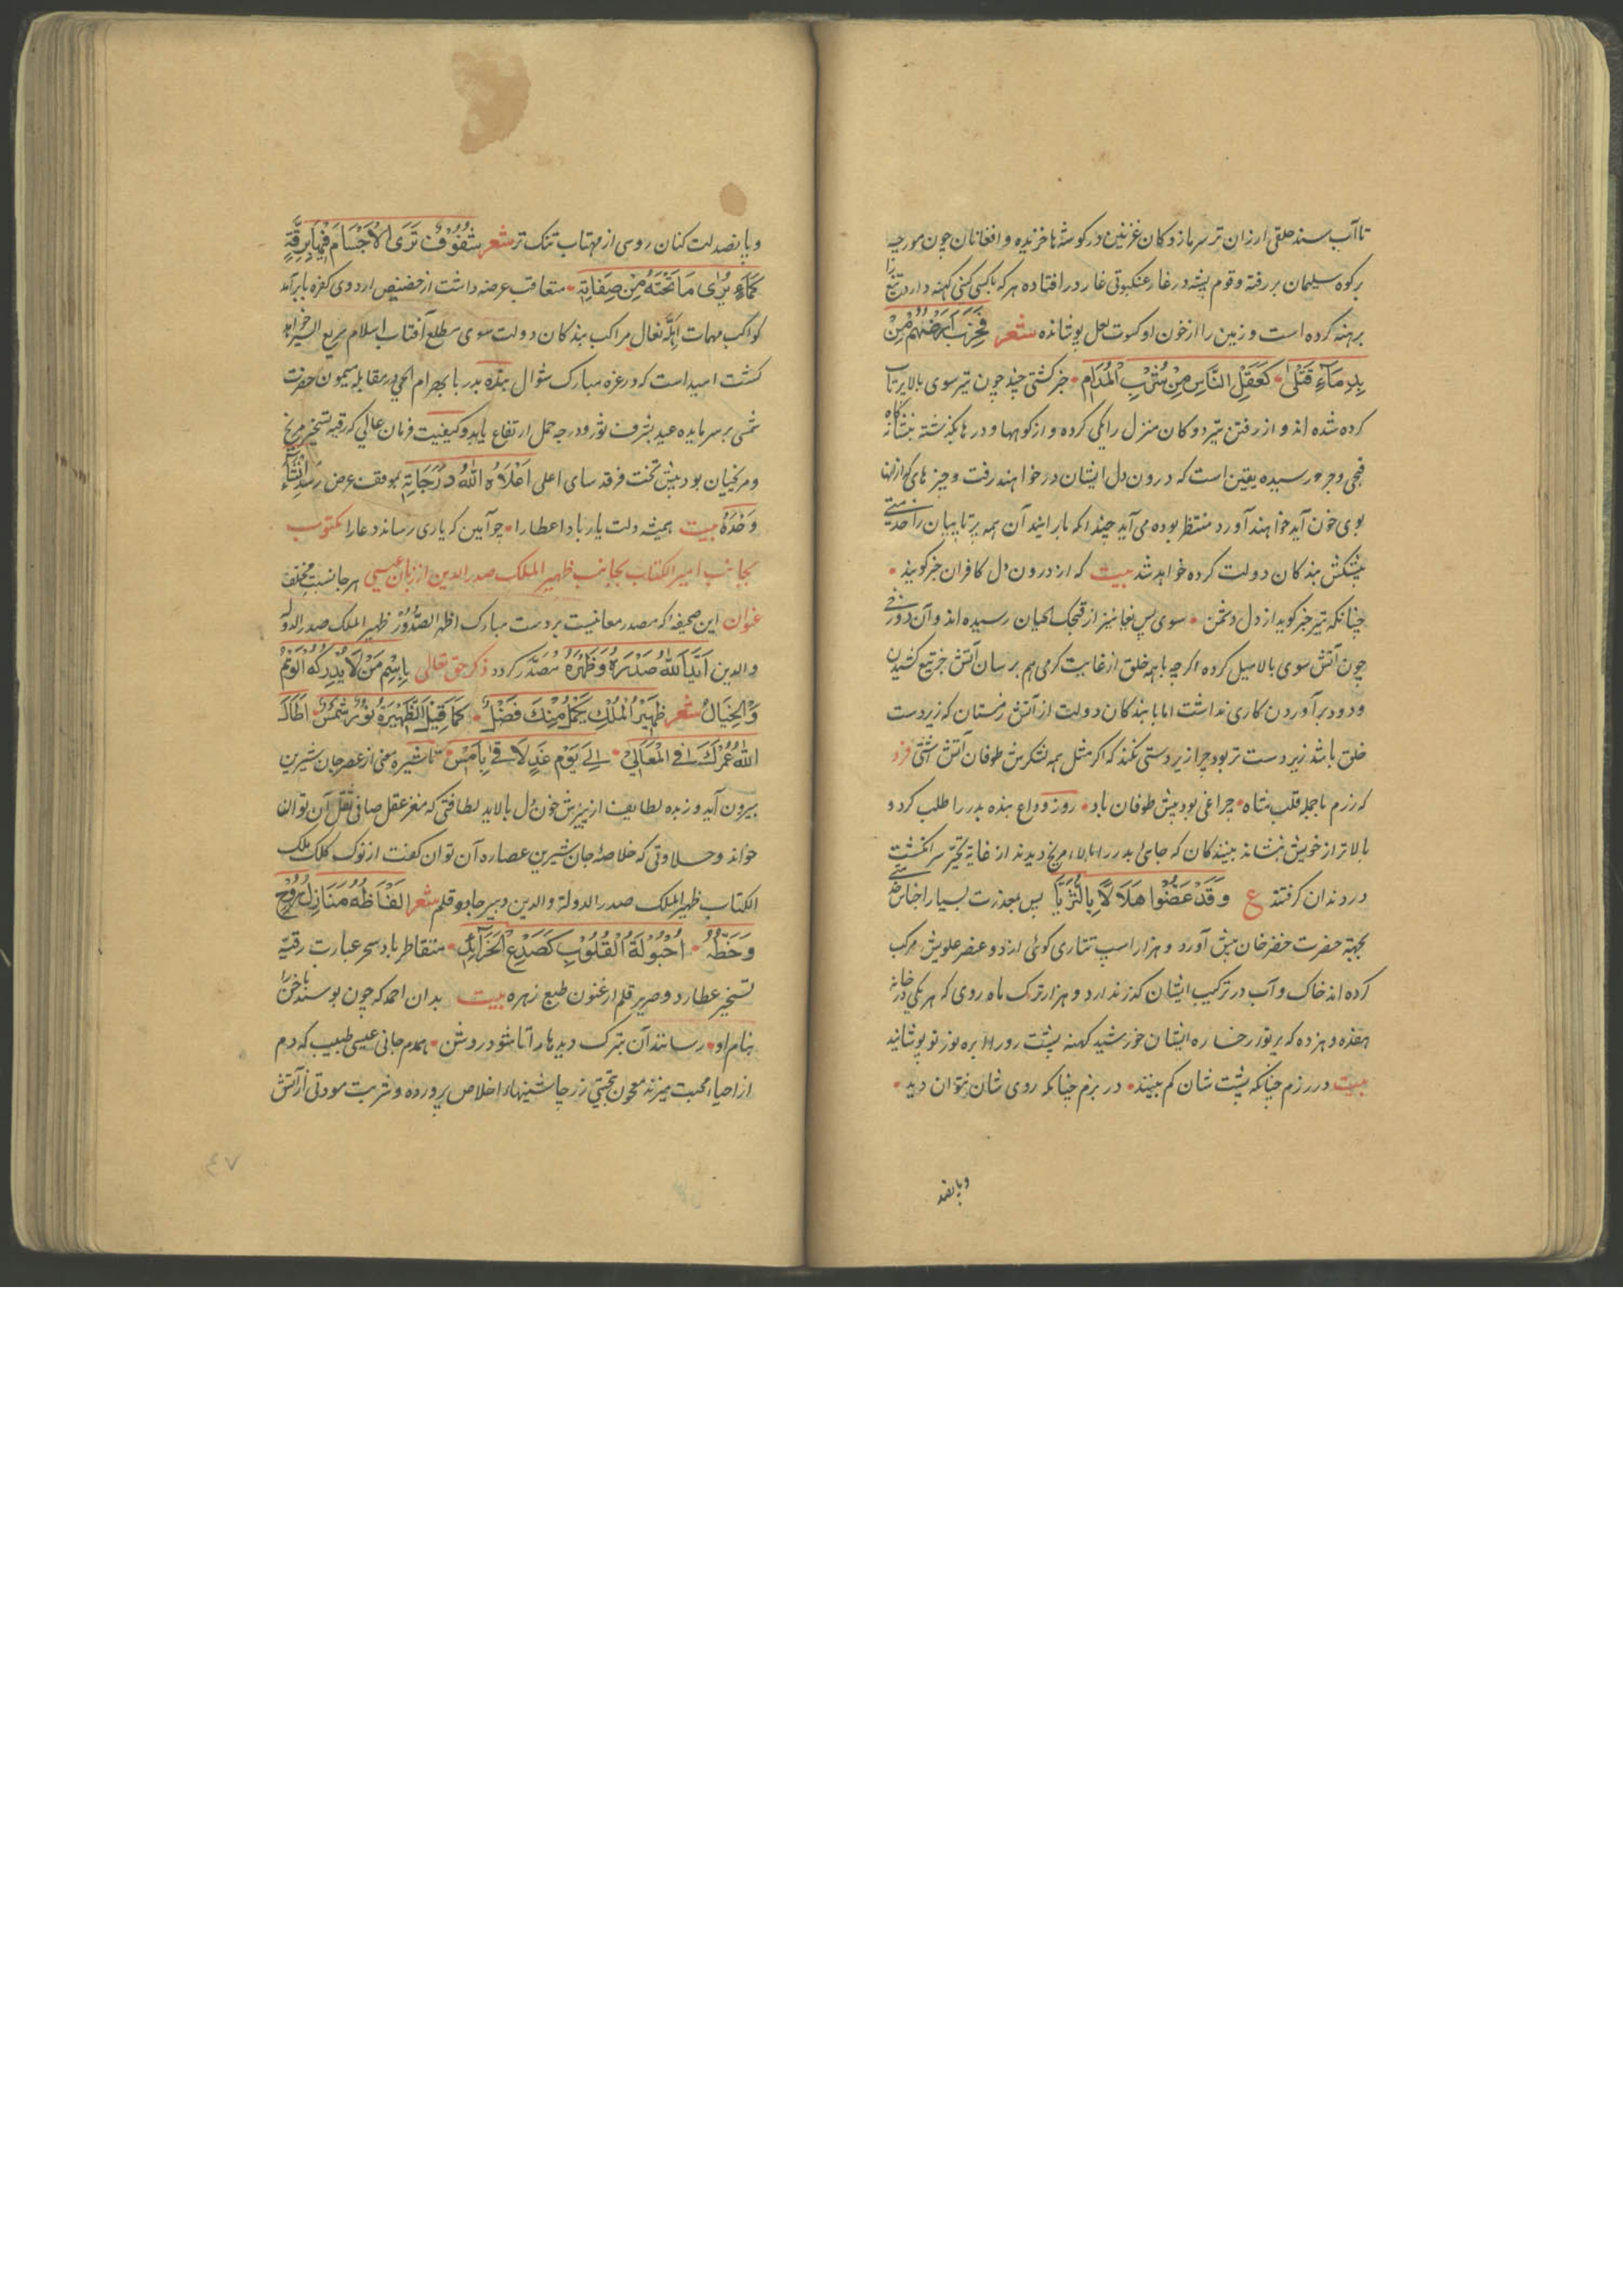 تا آب سند خلقی ارزان تر سرمازدکان غزنین در کوشه‌ها خزیده و افغانان چون مورچه
بر کوه سلیمان بر رفته و قوم پیشه در غار عنکبوتی غار در افتاده هر که
برهنه کرده است و زمین را از خون او کسوت لعل پوشانده شعر
بِدِمَآءِ قَتْلیٰ • کَعَقْلِ النَّاسِ مِنْ شُرْبِ الْمُدَامِ • خبر کشتی چند چون تیر سوی بالا پرتاب
کرده شده اند و از رفتن تیر دو کان منزل را یکی کرده و از کوهها و درها بکذشته
رسیده یقین است که درون دل ایشان در خواهند رفت و چیزهای که از ان
بوی خون آید خواهند آورد منتظر بوده می آید چندانکه بارایند آن همه پرتابیان را
پیشکش بندکان دولت کرده خواهد شد بیت که از درون دل کافران خبر کویند •
چنانکه تیر خبر کوید از دل دشمن • سوی پس یغما نیز از قبچاک لحیان رسیده اند و آن
چون آتش سوی بالا میل کرده اکرچه با همه خلق از غایت کرمی هم بر سان آتش جز تیغ کشیدن
و دود بر آوردن کاری نداشت اما با بندکان دولت از آتش زمستان که زیردست
خلق باشد زیردست تر بود چرا زیردستی نکند که اکر مثل همه لشکرش طوفان آتش
که رزم با حمله قلب شاه • چراغی بود پیش طوفان باد • روز وداع بنده بدر را طلب کرد و
بالاتر از خویش بنشاند بینندکان که جای بدر را بالاء مریخ دیدند از غایة تحیّر سر انکشت
در دندان کرفتند ع وَقَدْ عَضُّوا هِلَالًا بِالثُّرَیَّا پس بمعذرت بسیار
بجهة حضرت خضرخان پیش آورد و هزار اسپ تتاری کوئی از دو عنصر علویش مرکب
کرده اند خاک و آب در ترکیب ایشان کذر ندارد و هزار ترک ماه روی که هر یکی در خانه
هفده و هژده که پرتو رخساره ایشان خورشید کهنه پشت رو را از بره نوز تو پوشانید
بیت در رزم چنانکه پشت شان کم بینند • در بزم چنانکه روی شان نتوان دید •
و پانصد
و پانصد لت کتان روسی از مهتاب تنک تر شعر شُفُوْفٌ تَرَی الْاَجْسَامَ فِیْهَا بِرِقَّةٍ
کَمَآءٍ یُرٰی مَا تَحْتَهُ مِنْ صِفَاتِهٖ • متعاقب عرضه داشت از حضیض اردوی کفره بابرآمد
کواکب مهمات مراکب بندکان دولت سوی مطلع آفتاب اسلام سریع السیر خواهد
کشت امید است که در غره مبارک شوال بنده بدر با بهرام در مقابله میمون حضرت
شمسی بر سر مایده عید بشرف نور و درجه حمل ارتفاع یابد و کیفیت فرمان عالی که رقیه تسخیر مریخ
و مریخیان بود پیش تخت فرقد سای اعلی اَعْلَاهُ اللهُ دَرَجَاتِهٖ بموقف عرض رساند اِنْشَآءَ
وَحْدَهُ بیت همیشه دلت یار باد اعطا را • چو آیین که یاری رساند دعا را مکتوب
بجانب امیر الکتاب بجانب ظهیر الملک صدر الدین از زبان عیسی هر جا نسبت مختلف
عنوان این صحیفه که مصدر معانیست بر دست مبارک اظهر الصُّدُوْر ظهیر الملک صدر الدوله
والدین اَیَّدَ اللهُ صَدْرَهٗ وَظَهْرَهٗ مُصَدَّر کردد ذکر حق تعالی بِاسْمِ مَنْ لَا یُدْرِکُهُ الْوَهْمُ
وَالْخَیَالُ شعر ظَهِیْرُ الْمُلْکِ یَکْمُلُ مِنْکَ فَضْلٌ • کَمَا قَبْلَ الظَّهِیْرَةِ نُوْرُ شَمْسٍ • اَطَالَ
اللهُ عُمْرَکَ فِی الْمَعَالِیْ • اِلٰی یَوْمٍ غَدٍ لَاقٰی بِاَمْسٍ • تا شیره معنی از عصر جان شیرین
بیرون آید و زبده لطایف از پیزش خون دل بالاید لطافتی که مغز عقل صافی نقل آن توان
خواند و حلاوتی که خلاصهٔ جان شیرین عصاره آن توان کفت از نوک کلک ملک
الکتاب ظهیر الملک صدر الدولة والدین دبیر جادو قلم شعر اَلْفَاظُهُ مَنَازِلُ رُوْحٍ
وَخَطُّهٗ • اُحْبُوْلَةُ الْقُلُوْبِ کَصَدْغِ الْخَرَائِدِ • متقاطر باد سحر عبارت رقیه
تسخیر عطارد و صریر قلم ارغنون طبع زهره بیت بدان احمد که چون بوسند
بنام او • رسانند آن تبرک دیدها را تا شود روشن • همدم جانی عیسی طبیب که دم
از احیاء محبت میزند معجون تحیتی ز ر چاشنیهاء اخلاص پرورده و شربت مودتی از آتش
٤٧